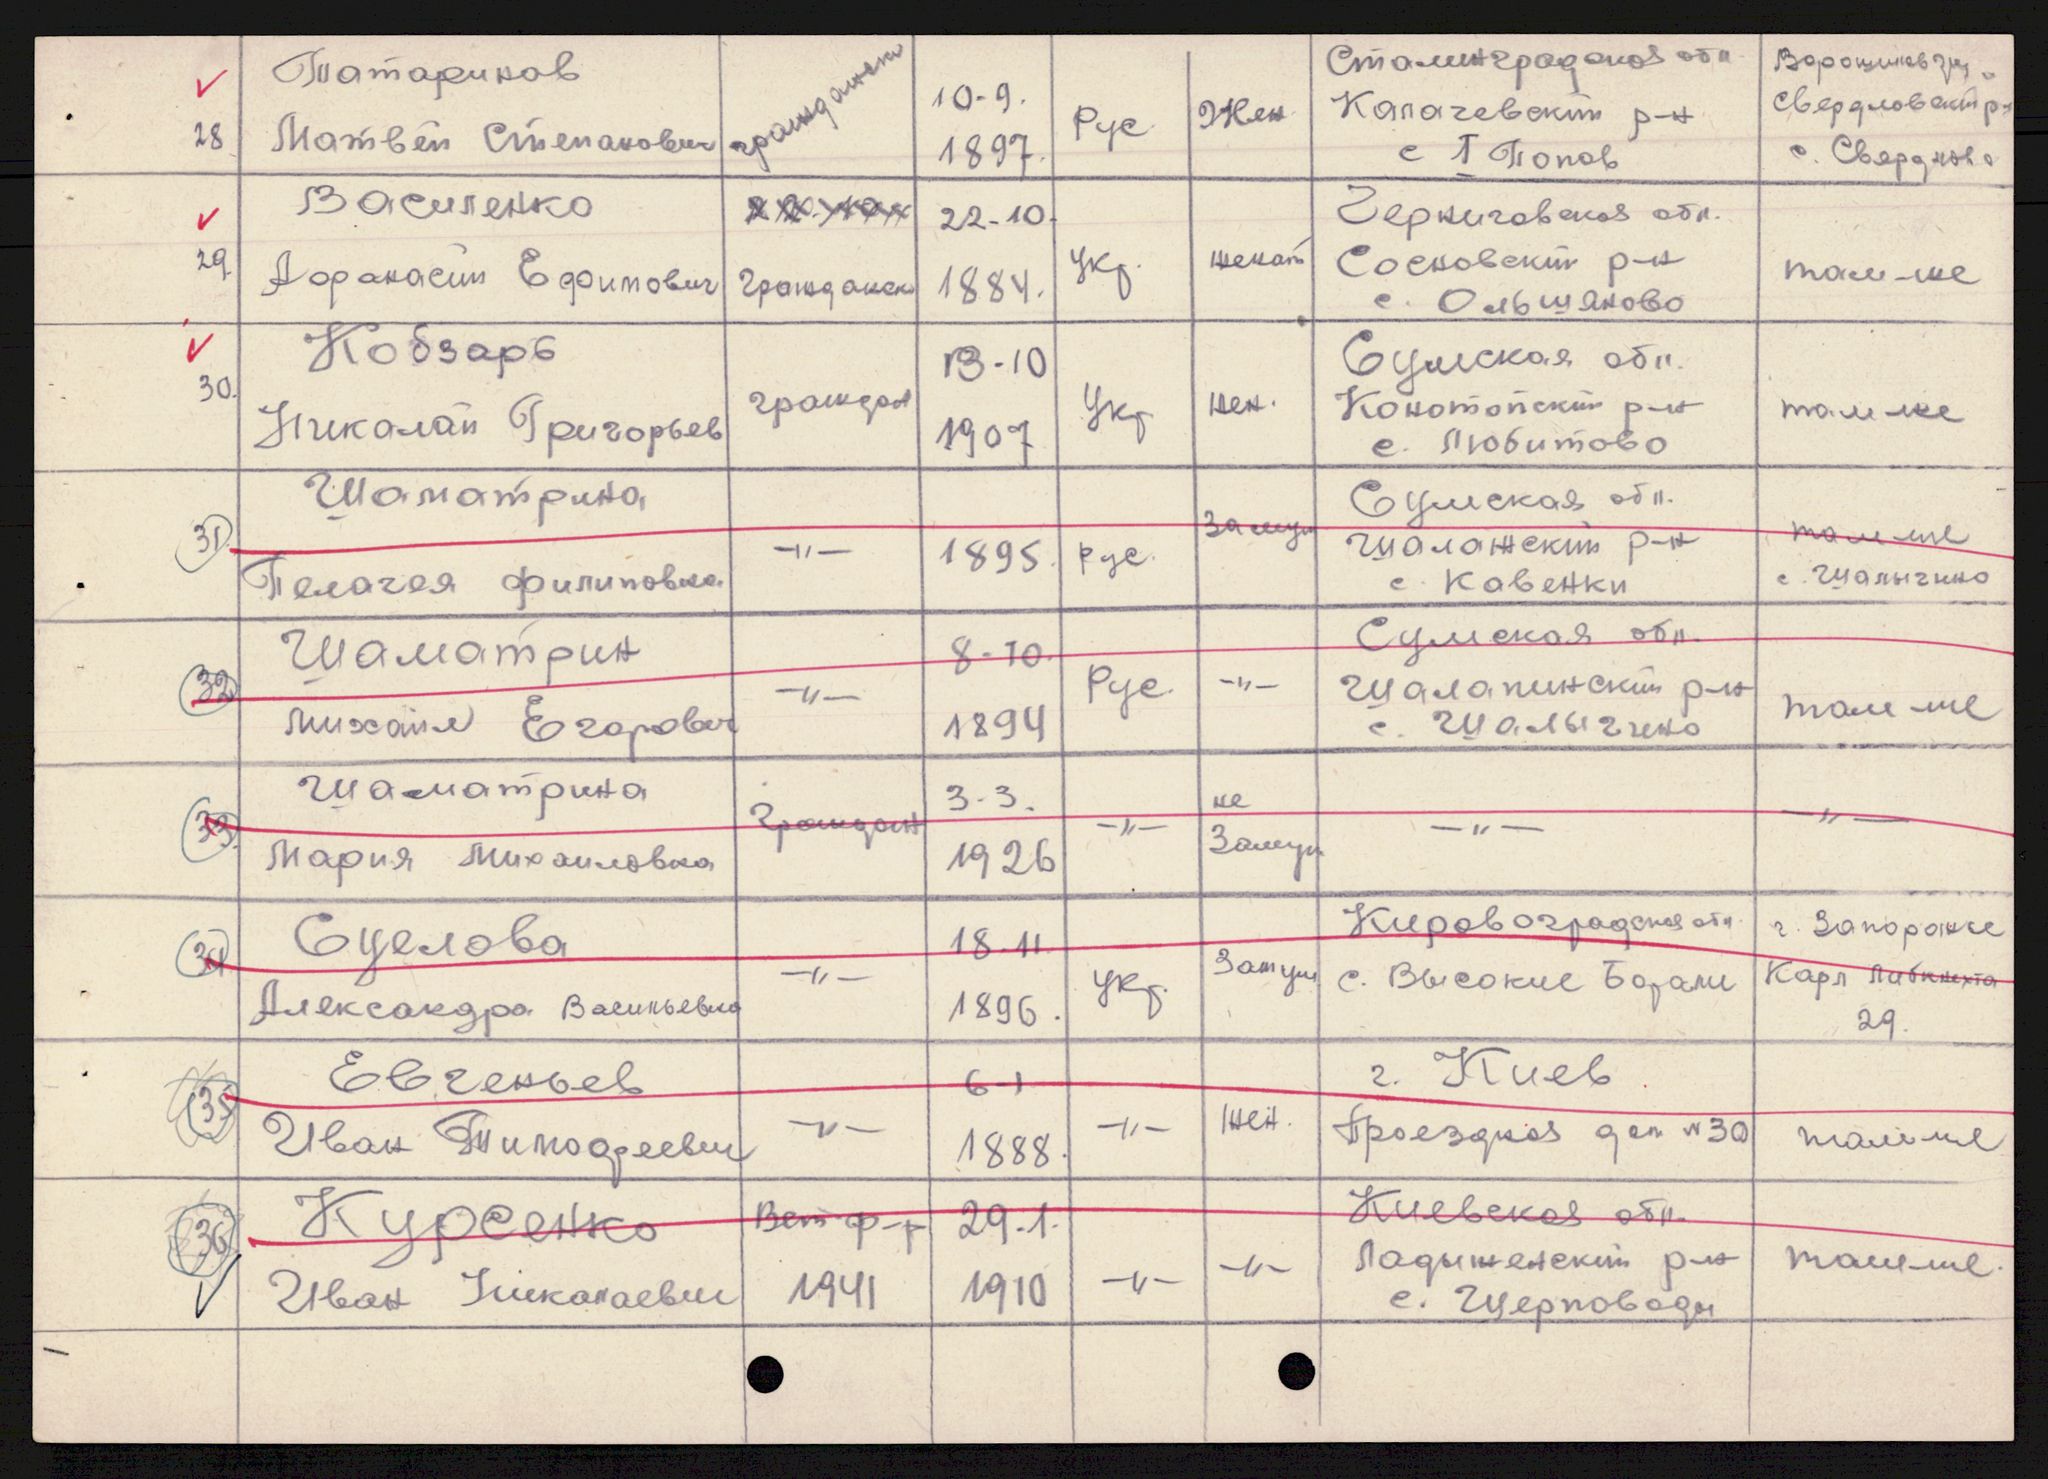 Татаринов
28 Матвей Степанович
граждански
10-9.
1897.
Рус.
Жен.
Сталинградская обл.
Калачевский р-н
с Попов
Свердловский р-н
с. Свердлова
Василенко
29. Афанасий Ефимович
Гражданск
22-10.
1884.
Укр.
женат
Черниговская обл.
Сосновский р-н
с. Ольшяново
там-же
Кобзарь
30. Николай Григорьев
граждан
13-10
1907
Укр
жен.
Сумская обл.
Конотопский р-н
с. Любитово
там же
Шаматрина
31. Пелагея Филиповна
-"-
1895.
рус.
Замуж
Сумская обл.
Шалажский р-н
с. Кавенки
там же
с. Шалычино
Шаматрин
32 Михаил Егорович
-"-
8-10.
1894
Рус.
-"-
Сумская обл.
Шалапинский р-н
с. Шалычино
там-же
Шаматрина
33. Мария Михаиловна
Граждан
3-3.
1926
-"-
не
Замуж
-"-
-"-
Суслова
34 Александра Васильевна
-"-
18-11
1896.
Укр.
Замуж
Кировоградская обл.
с. Высокие Борали
г. Запорожье
Карл Либкнехта
29.
Евгеньев
35 Иван Тимофеевич
-"-
6-1
1888.
-"-
жен.
г. Киев
Проездная дом № 30
там-же
Курсенко
36 Иван Николаевич
Вет ф-р
1941
29.1.
1910
-"-
-"-
Киевская обл.
Ладыженский р-н
с. Щерповоды
там-же.